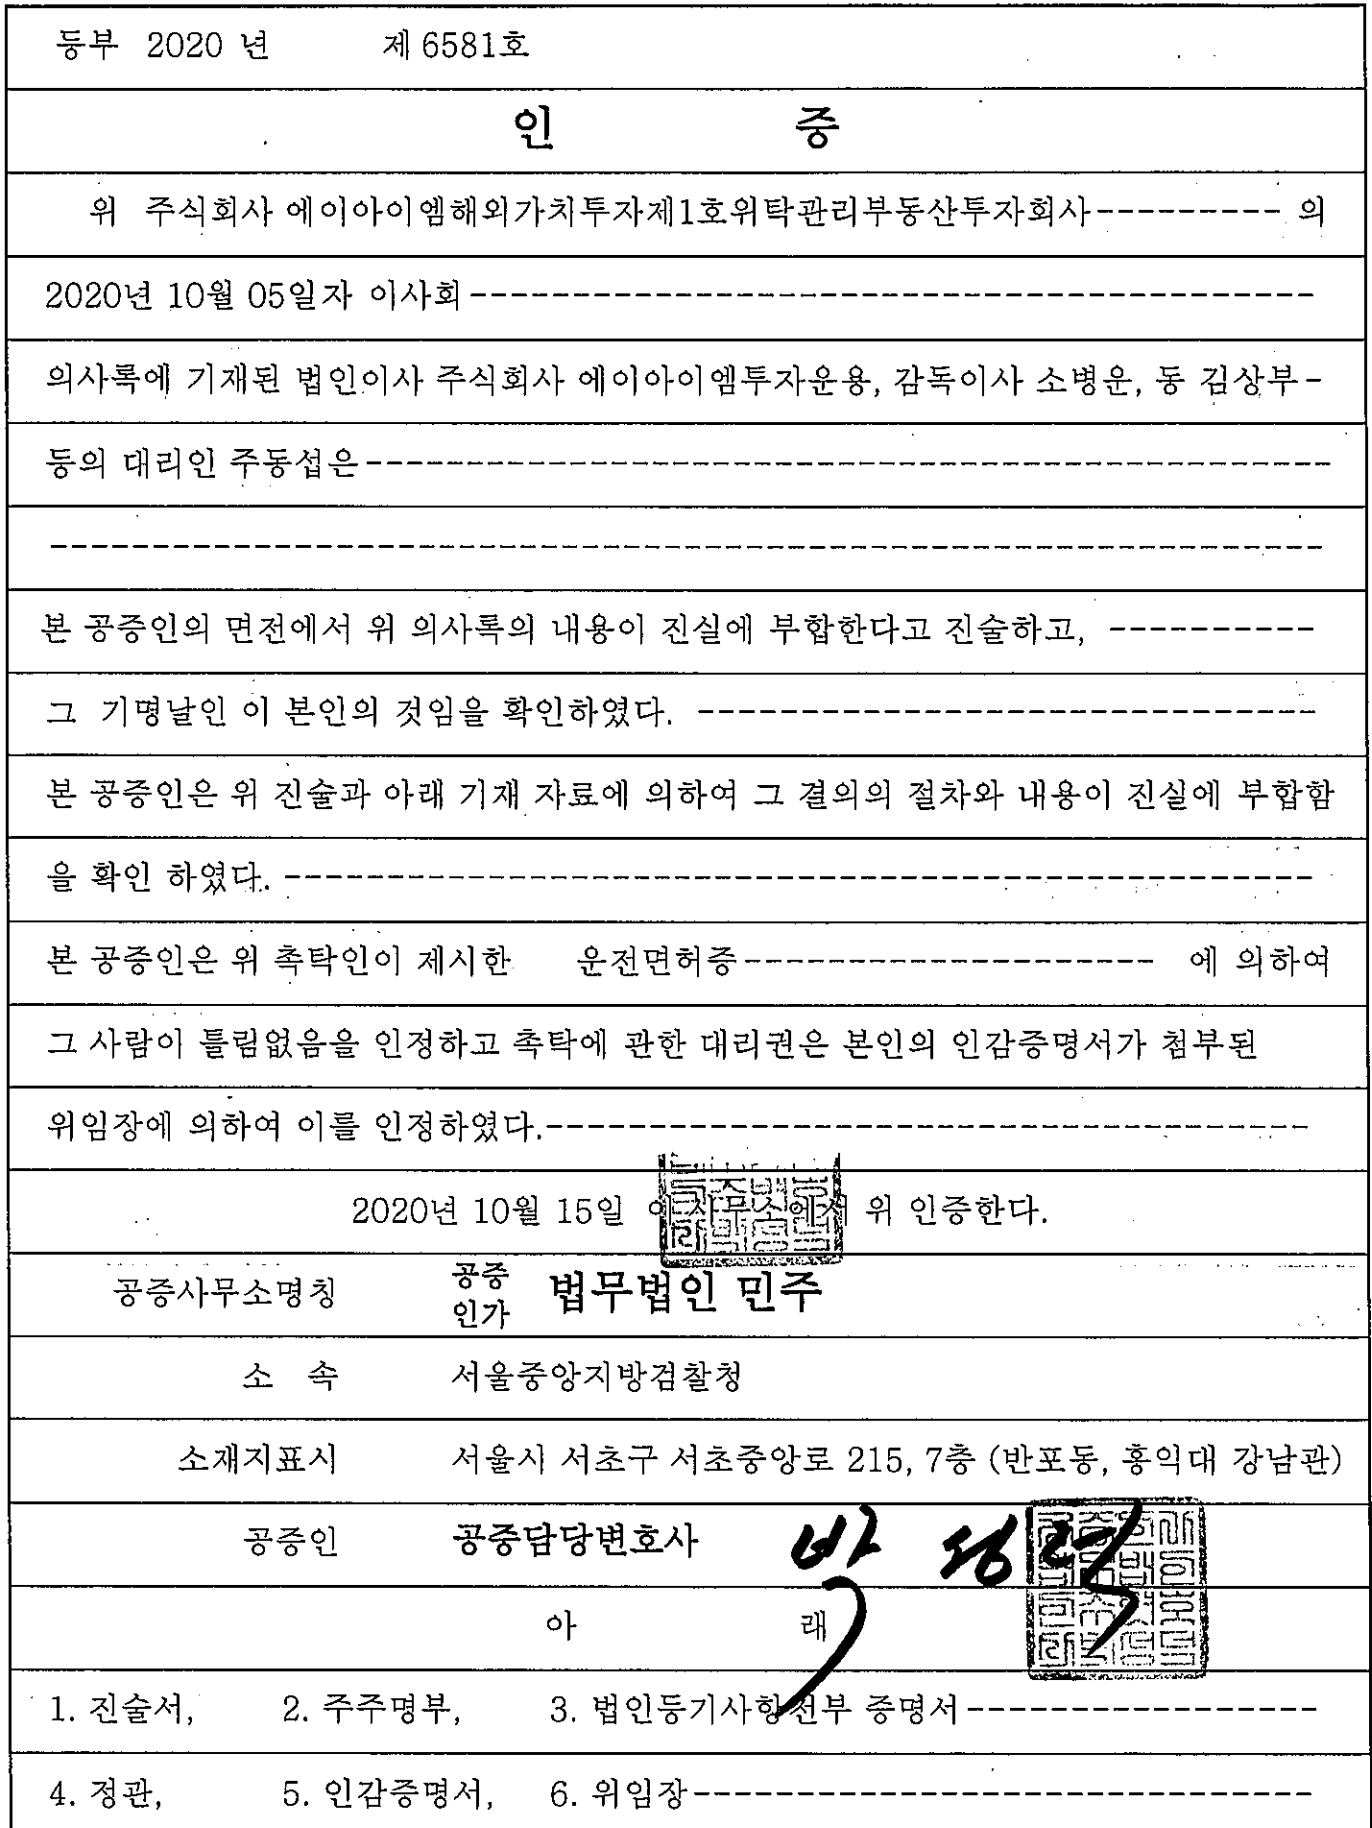 등부 2020 년 제 6581호
인 증
위 주식회사 에이아이엠해외가치투자제1호위탁관리부동산투자회사--------- 의
2020년 10월 05일자 이사회-----------------------------------------
의사록에 기재된 법인이사 주식회사 에이아이엠투자운용, 감독이사 소병운, 동 김상부-
등의 대리인 주동섭은-----------------------------------------------
--------------------------------------------------------------
본 공증인의 면전에서 위 의사록의 내용이 진실에 부합한다고 진술하고, ----------
그 기명날인 이 본인의 것임을 확인하였다. ------------------------------
본 공증인은 위 진술과 아래 기재 자료에 의하여 그 결의의 절차와 내용이 진실에 부합함
을 확인 하였다. --------------------------------------------------
본 공증인은 위 촉탁인이 제시한 운전면허증-------------------- 에 의하여
그 사람이 틀림없음을 인정하고 촉탁에 관한 대리권은 본인의 인감증명서가 첨부된
위임장에 의하여 이를 인정하였다.-------------------------------------
2020년 10월 15일 이 사무소에서 위 인증한다.
공증사무소명칭 공증인가 법무법인 민주
소 속 서울중앙지방검찰청
소재지표시 서울시 서초구 서초중앙로 215, 7층 (반포동, 홍익대 강남관)
공증인 공증담당변호사 박
아 래
1. 진술서, 2. 주주명부, 3. 법인등기사항전부 증명서-----------------
4. 정관, 5. 인감증명서, 6. 위임장------------------------------